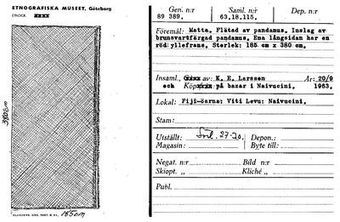 ETNOGRAFISKA MUSEET, Göteborg
380cm
165cm
Gen. n:r
89 389.
Saml. n:r
63.18.115.
Dep. n:r
Föremål: Matta. Flätad av pandanus. Inslag av
brunsvartfärgad pandanus. Ena långsidan har en
röd yllefrans. Storlek: 165 cm x 380 cm.
Insaml. av: K. E. Larsson
År: 20/9
och Köp på bazar i Naivucini.
1963.
Lokal: Fiji-öarna: Viti Levu: Naivucini.
Stam:
Utställt: Söl. 27-20.
Depon.:
Magasin:
Byte till:
Negat. n:r
Bild n:r
Skiopt. »
Kliché »
Publ.